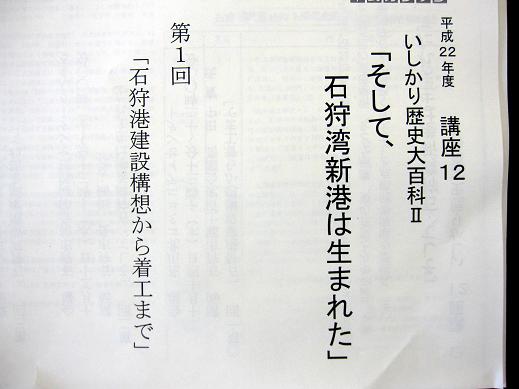 平成22年度 講座12
いしかり歴史大百科Ⅱ
「そして、
石狩湾新港は生まれた」
第1回
「石狩港建設構想から着工まで」